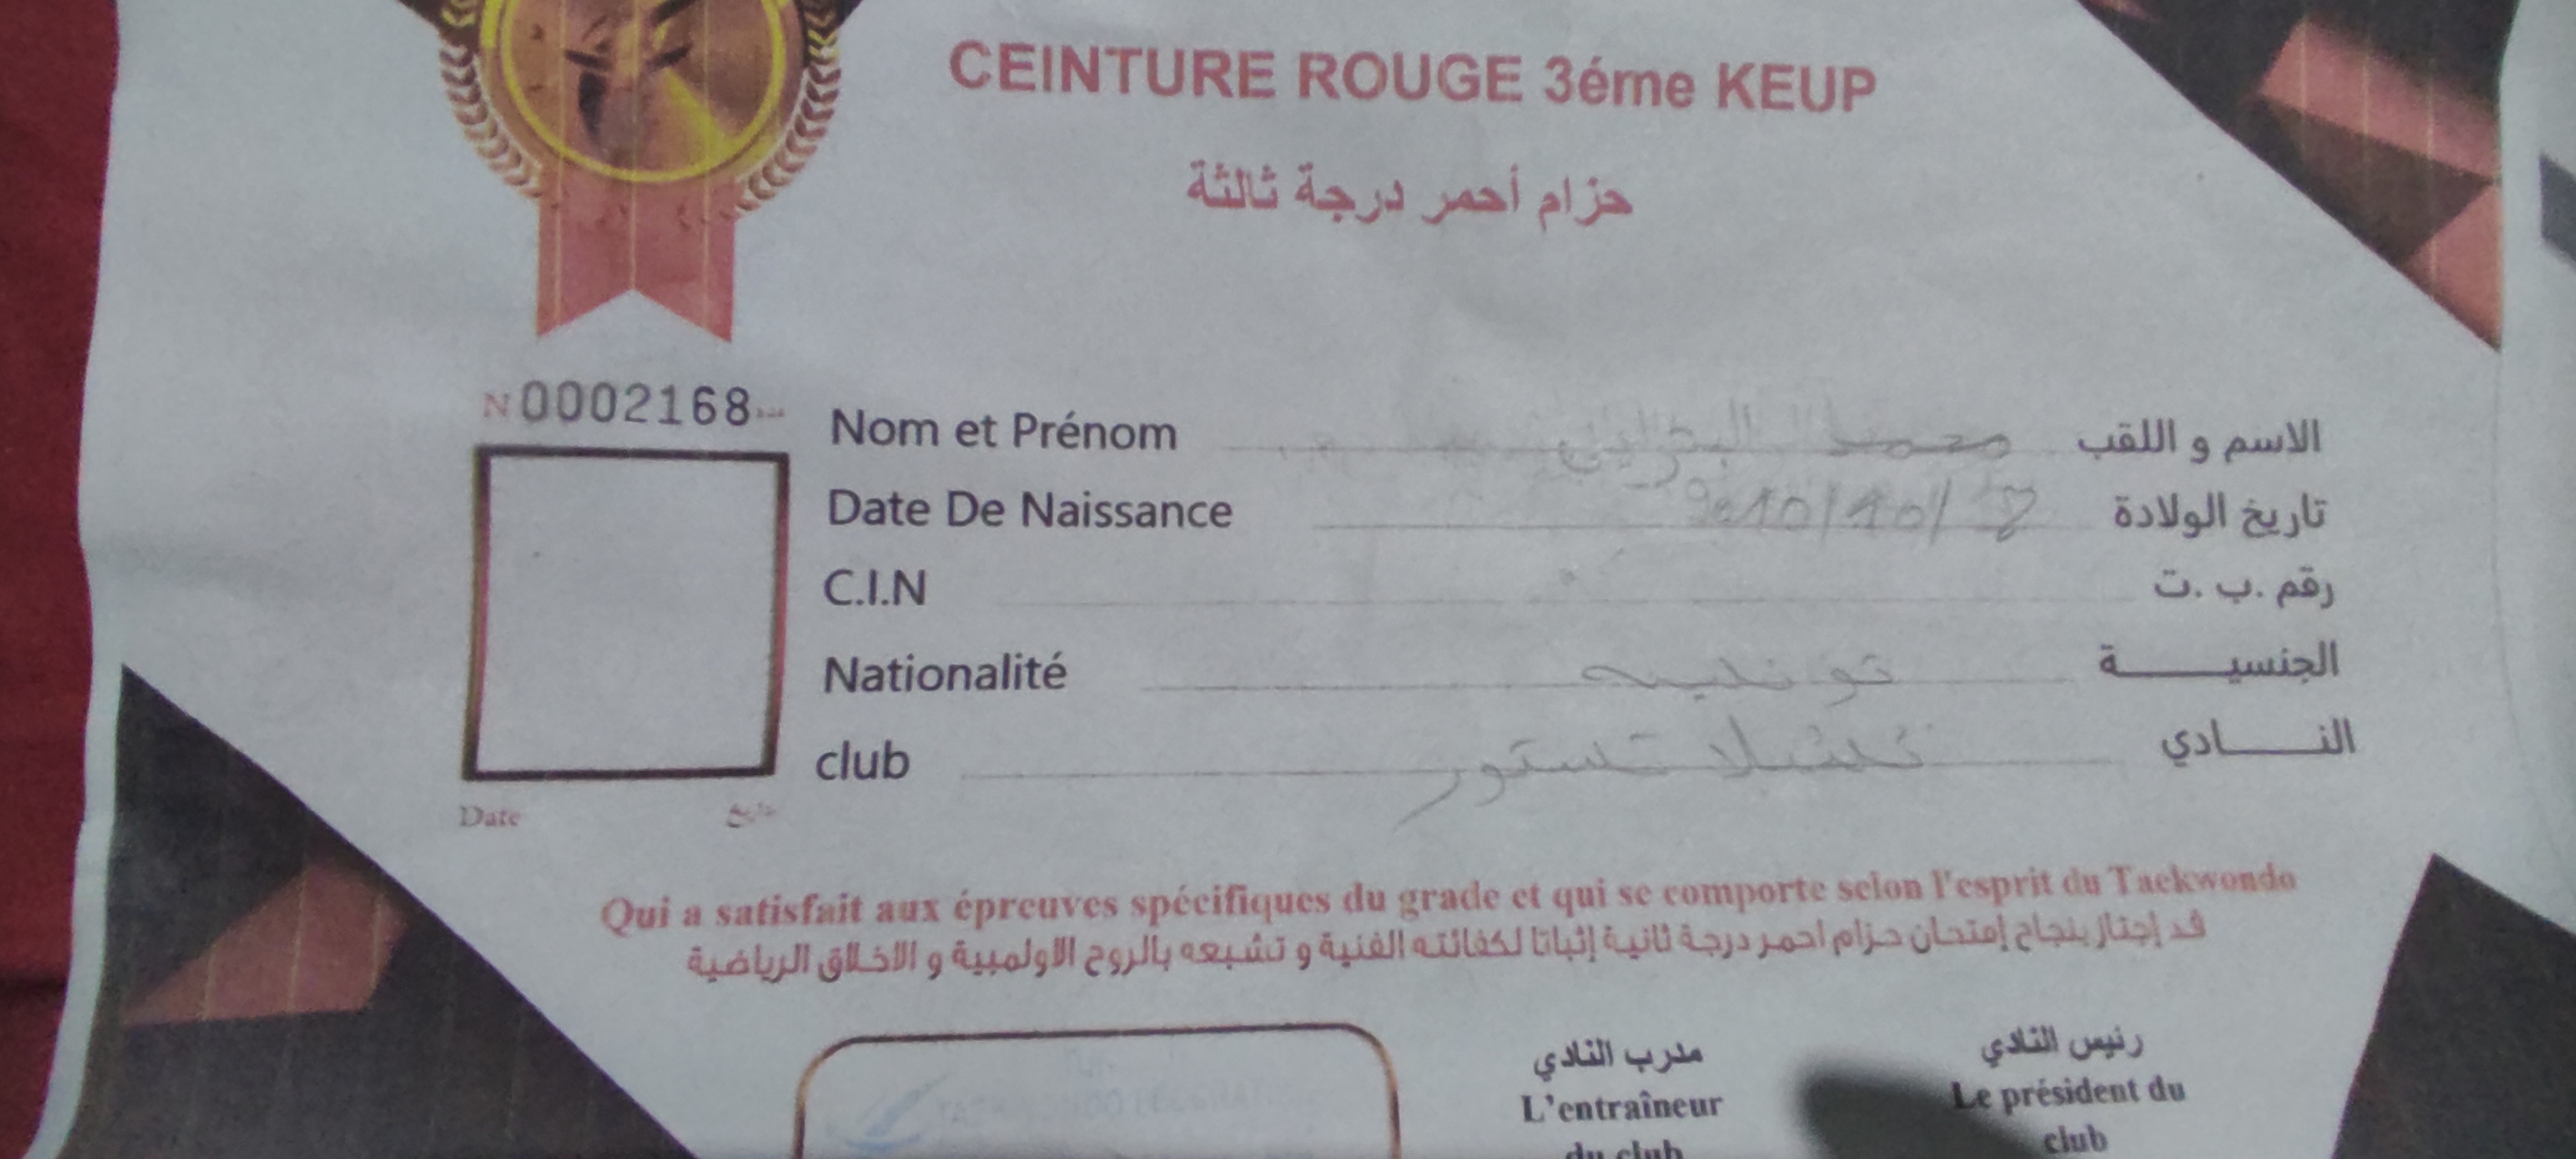 CEINTURE ROUGE 3éme KEUP
حزام أحمر درجة ثالثة
N 0002168
Nom et Prénom محمد الاسم و اللقب
Date De Naissance 2010/10/ 8 تاريخ الولادة
C.I.N رقم .ب .ت
Nationalité تونسية الجنسيـــــــة
club تستور النـــــادي
Date تاريخ
Qui a satisfait aux épreuves spécifiques du grade et qui se comporte selon l'esprit du Taekwondo
قد إجتاز بنجاح إمتحان حزام احمر درجة ثانية إثباتا لكفائته الفنية و تشبعه بالروح الاولمبية و الاخلاق الرياضية
مدرب النادي رئيس النادي
L'entraîneur Le président du
du club club